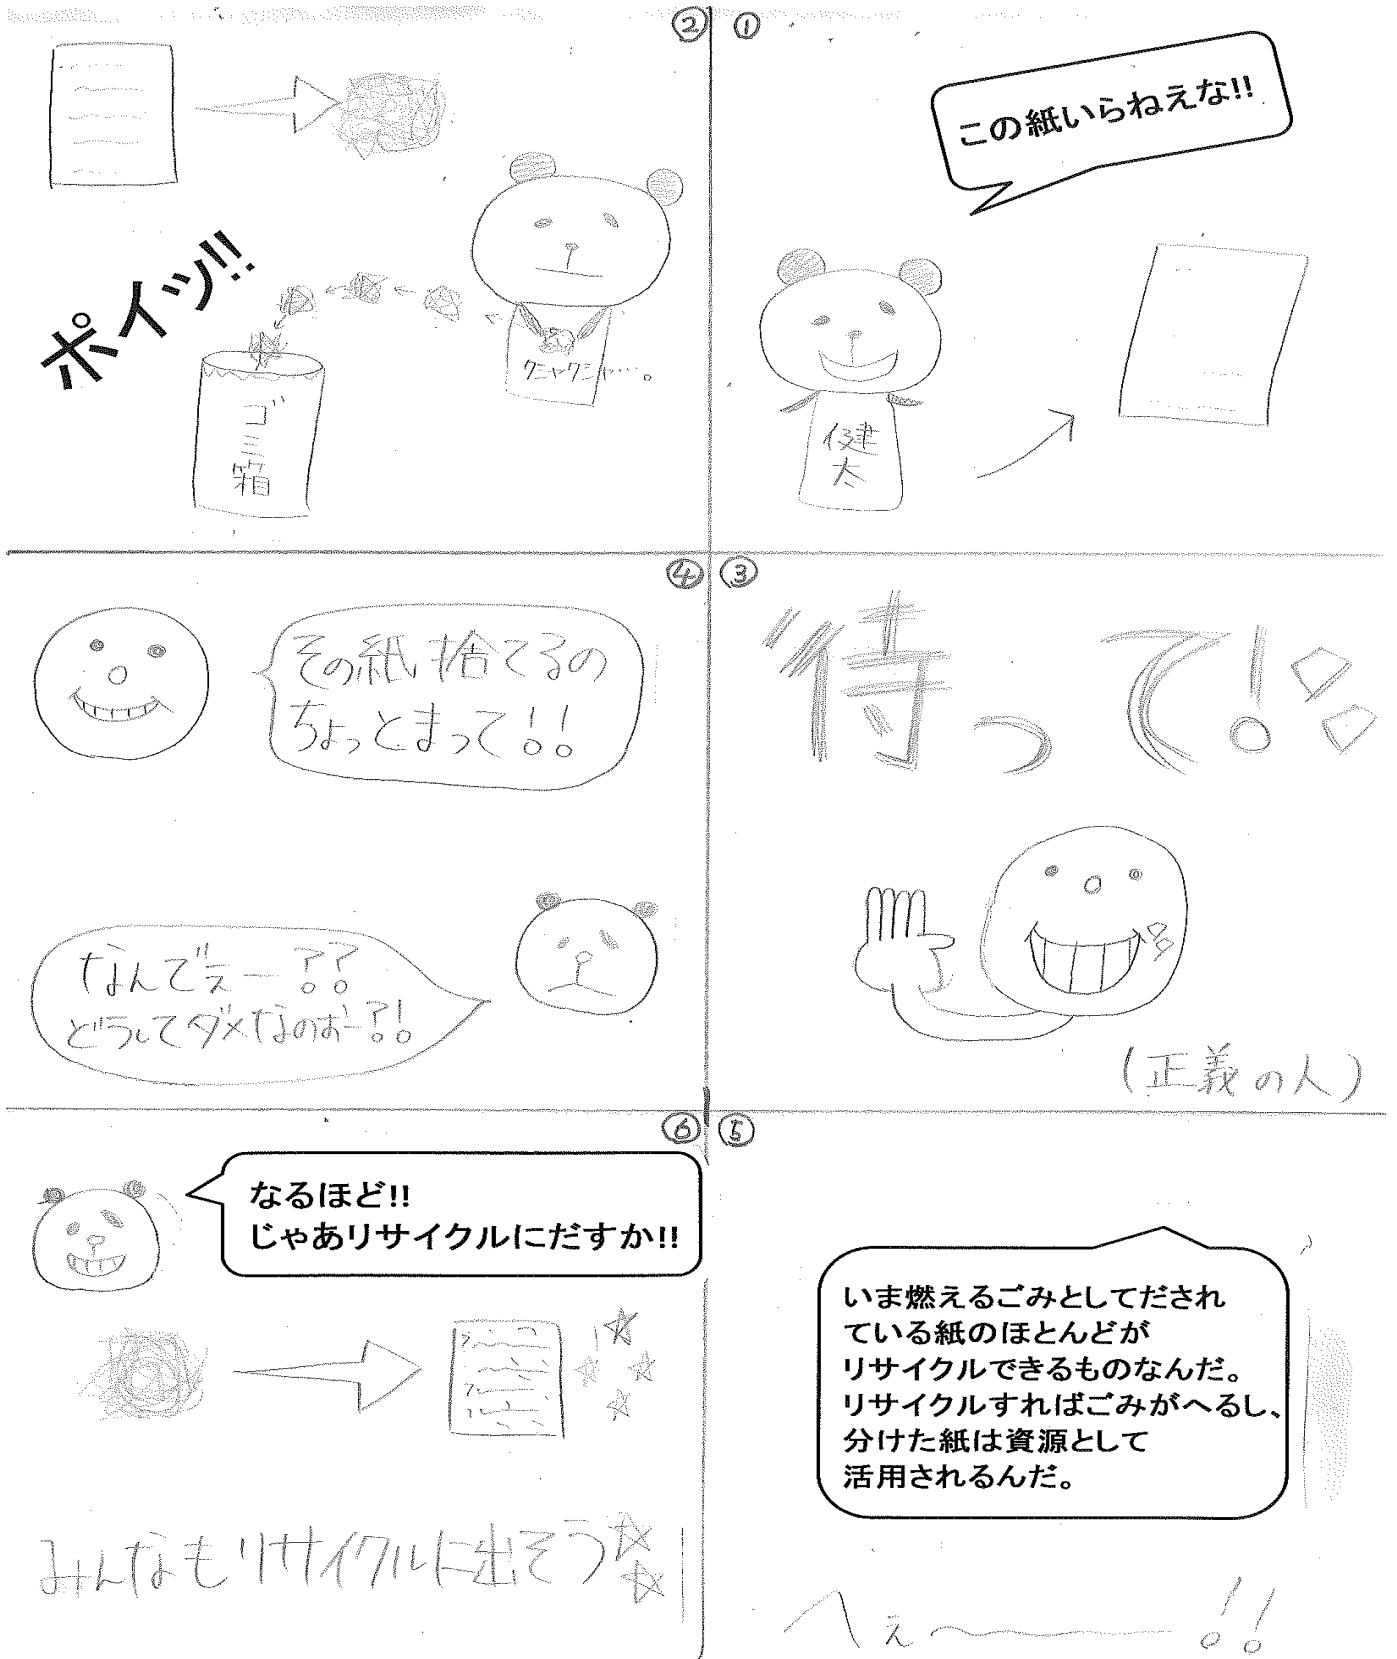 ①
この紙いらねえな!!
健
太
②
クシャクシャ…。
ポイッ!!
ゴミ箱
③
待って!
(正義の人)
④
その紙捨てるの
ちょっとまって!!
なんでぇー??
どうしてダメなのぉー?!
⑤
いま燃えるごみとしてだされ
ている紙のほとんどが
リサイクルできるものなんだ。
リサイクルすればごみがへるし、
分けた紙は資源として
活用されるんだ。
へぇ〜!!
⑥
なるほど!!
じゃあリサイクルにだすか!!
みんなもリサイクルに出そう☆☆